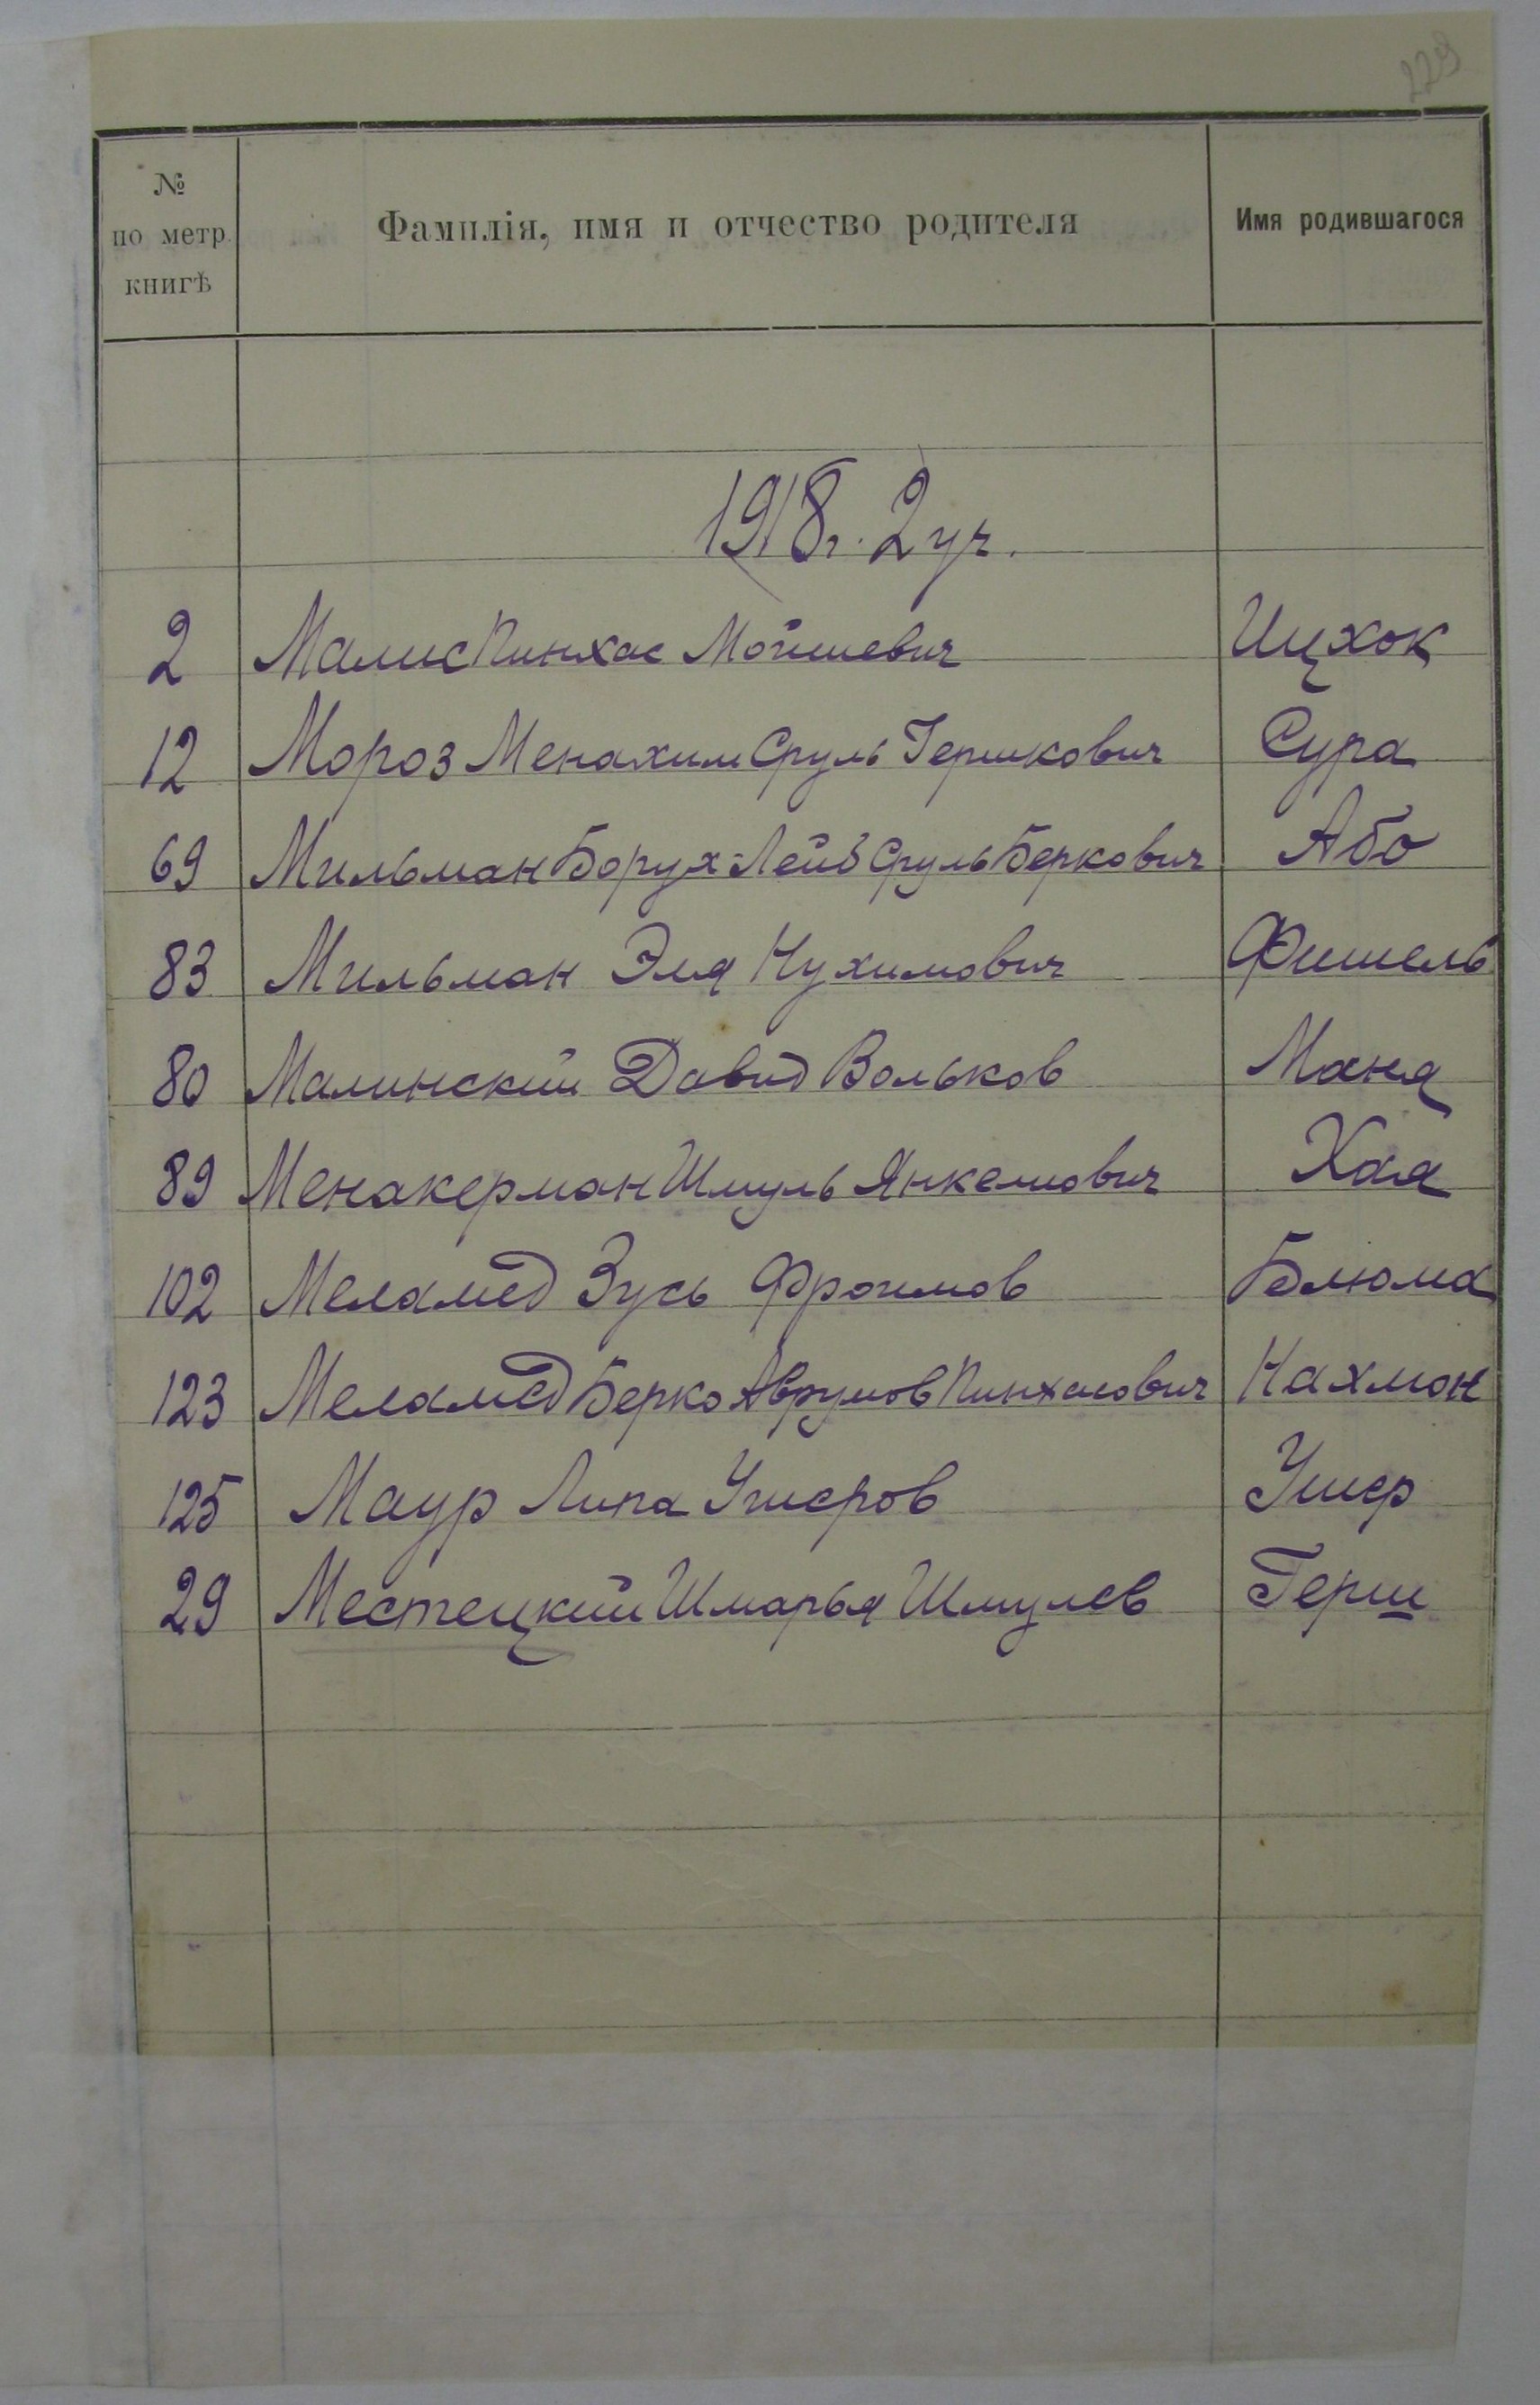 229
№ по метр. книгѣ Фамилія, имя и отчество родителя Имя родившагося
1918 г. 2 уч.
2 Малис Пинхас Мойшевич Ицхок
12 Мороз Менахим Сруль Гершкович Сура
69 Мильман Борух-Лейб Сруль Беркович Або
83 Мильман Эля Нухимович Фишель
80 Малинский Давид Вольков Маня
89 Менакерман Шмуль Янкелиович Хая
102 Меламед Зусь Фроимов Блюма
123 Меламед Берко Аврумов Пинхасович Нахман
125 Маур Липа Ушеров Ушер
29 Местецкий Шмарья Шмулев Герш